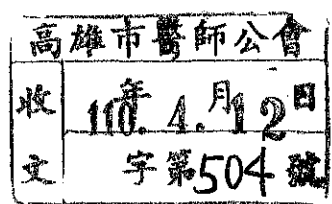 高雄市醫師公會
收文
110年4.月12日
字第504號